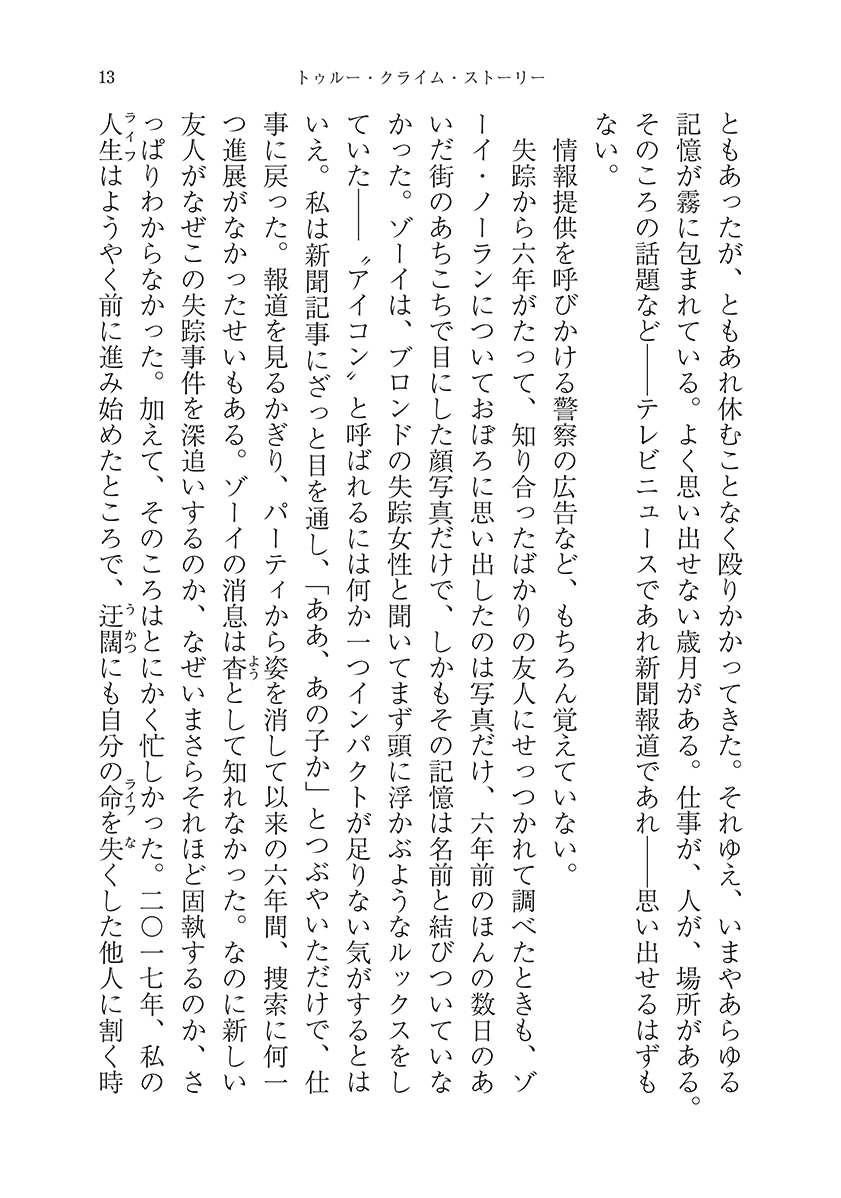 13
トゥルー・クライム・ストーリー
ともあったが、ともあれ休むことなく殴りかかってきた。それゆえ、いまやあらゆる
記憶が霧に包まれている。よく思い出せない歳月がある。仕事が、人が、場所がある。
そのころの話題など――テレビニュースであれ新聞報道であれ――思い出せるはずも
ない。
情報提供を呼びかける警察の広告など、もちろん覚えていない。
失踪から六年がたって、知り合ったばかりの友人にせっつかれて調べたときも、ゾ
ーイ・ノーランについておぼろに思い出したのは写真だけ、六年前のほんの数日のあ
いだ街のあちこちで目にした顔写真だけで、しかもその記憶は名前と結びついていな
かった。ゾーイは、ブロンドの失踪女性と聞いてまず頭に浮かぶようなルックスをし
ていた――〝アイコン〟と呼ばれるには何か一つインパクトが足りない気がするとは
いえ。私は新聞記事にざっと目を通し、「ああ、あの子か」とつぶやいただけで、仕
事に戻った。報道を見るかぎり、パーティから姿を消して以来の六年間、捜索に何一
つ進展がなかったせいもある。ゾーイの消息は杳として知れなかった。なのに新しい
友人がなぜこの失踪事件を深追いするのか、なぜいまさらそれほど固執するのか、さ
っぱりわからなかった。加えて、そのころはとにかく忙しかった。二〇一七年、私の
人生はようやく前に進み始めたところで、迂闊にも自分の命を失くした他人に割く時